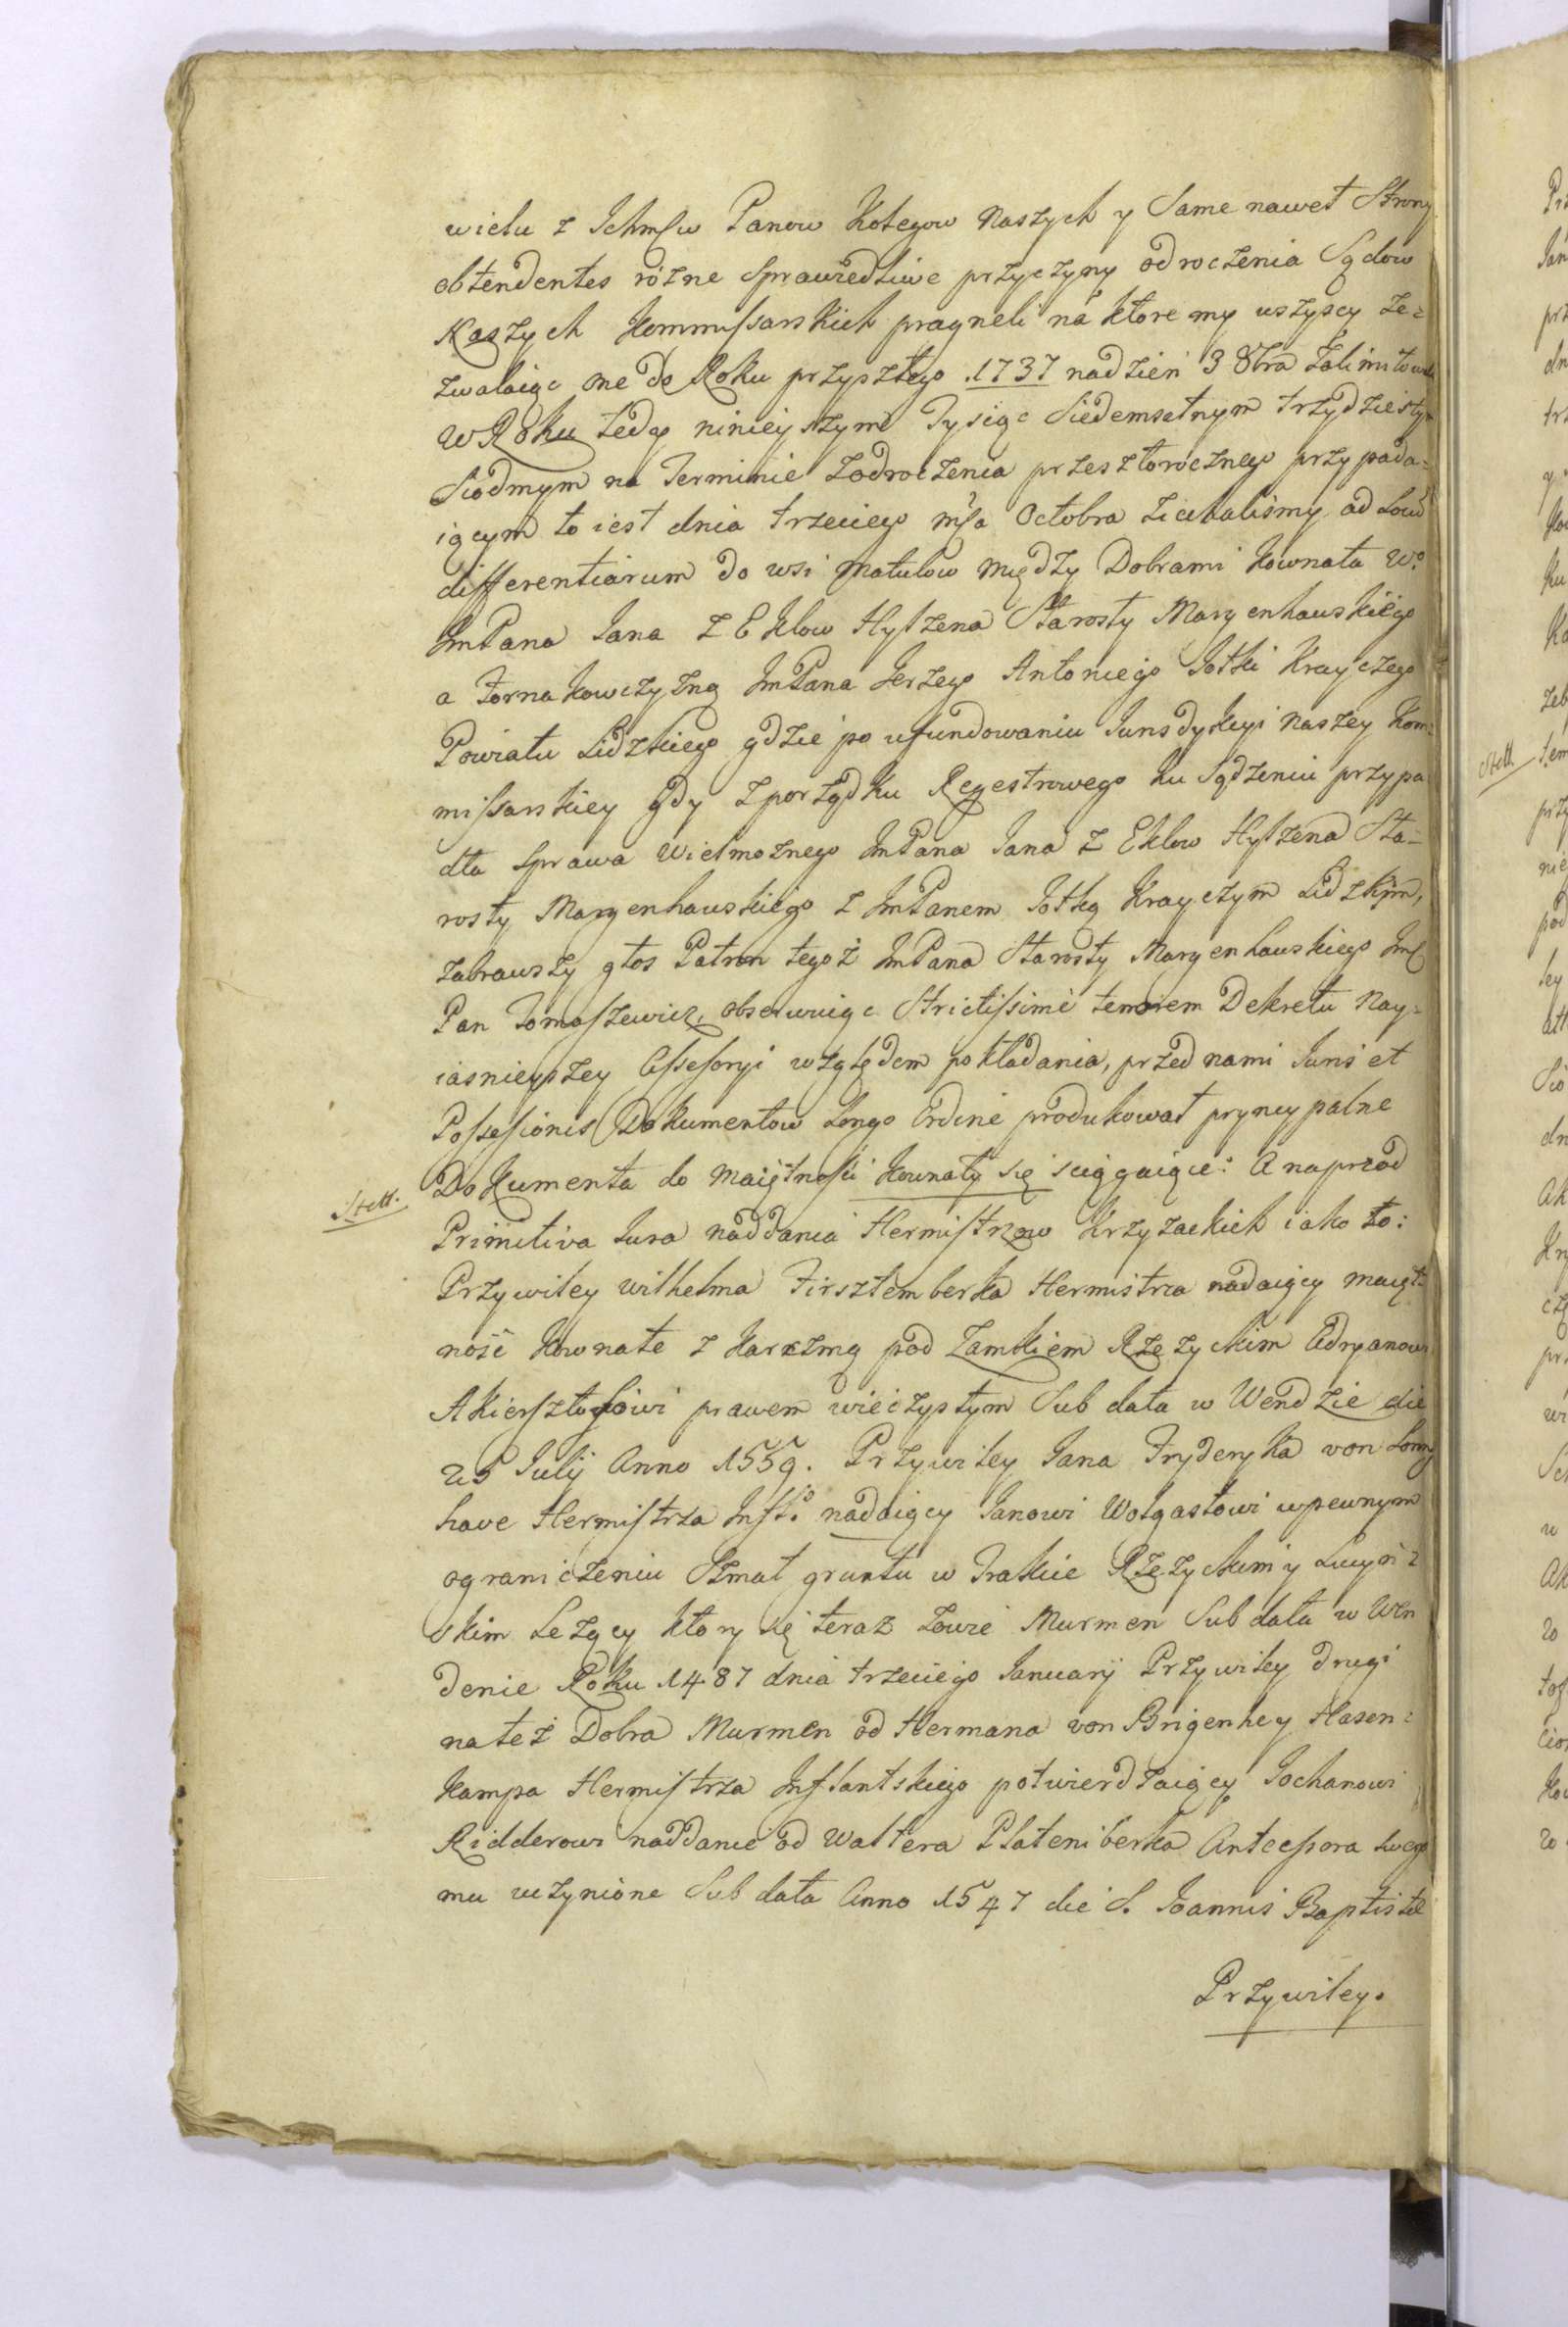 wielu z Ichmſw Panow Kolegow Naszych y Same nawet Strony
obtendentes rózne Sprawiedliwe przyczyny odroczenia Sądow
Naszych Kommiſsarskich pragneli na ktore my wszyscy ze=
zwalaiąc one do Roku przyszłego 1737 na dzień 3 8bra zalimitowali
W Roku tedy ninieyszym Tysiąc Siedemsetnym trzydziestym
Siodmym na Terminie z odroczenia przeszłorocznego przypada=
iącym to iest dnia trzeciego mſa Octobra ziechaliśmy ad Locū
differentiarum do wsi Matulow między Dobrami Kownata W°
ImPana Jana z Eklow Hylzena Starosty Maryenhauskiego
a Tornakowczyzną ImPana Jerzego Antoniego Sołki Krayczego
Powiatu Lidzkiego gdzie po ufundowaniu Jurisdykcyi Naszey Kom=
miſsarskiey gdy z porządku Regestrowego ku Sądzeniu przypa
dła Sprawa Wielmoznego ImPana Jana z Eklow Hylzena Sta=
rosty Maryenhauskiego z ImPanem Sołką Krayczym Lidzkim,
zabrawszy głos Patron tegoż ImPana Starosty Maryenhauskiego Imſ
Pan Tomaſzewicz, obserwuiąc Strictiſsimè tenorem Dekretu Nay=
iaśnieyszey Aſseſoryi względem pokładania, przed nami Juris et
Poſseſsionis Dokumentow Longo Ordine produkował pryncypalne
Dokumenta do Maiętnoſci Kownaty się sciągaiące: A naprzod
Stett.
Primitiva Jura naddania Hermiſtrzow Krzyzackich iako to:
Przywiley Wilhelma Firsztemberka Hermistrza nadaiący maięt=
ność Kownate z Karczmą pod Zamkiem Rzezyckim Adryanowi
Akierſztoffowi prawem wieczystym Sub data w Wendzie die
25 Julij Anno 1559. Przywiley Jana Fryderyka von
have Hermiſtrza Inſt° nadaiący Janowi Wolgastowi w pewnym
ograniczeniu Szmat gruntu w Trakcie Rzezyckim y Lucyń=
skim Lezący ktory się teraz zowie Murmen Sub data w Wen
denie Roku 1487 dnia trzeciego January Przywiley drugi
na też Dobra Murmen od Hermana von Brigenhey Hasen=
kampa Hermiſtrza Inflantskiego potwierdzaiący Jochanowi
Ridderowi naddanie od Waltera Platemberka Antceſsora swego
mu uczynione Sub data Anno 1547 die S. Joannis Baptistæ
Przywiley.